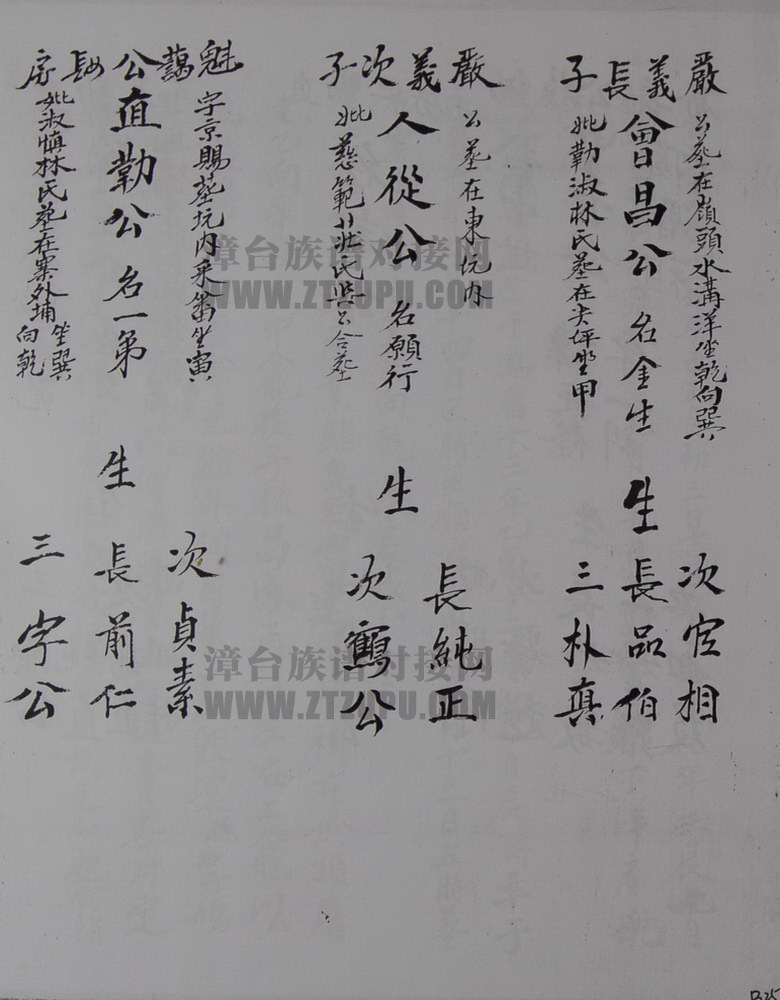 嚴義長子
公墓在嶺頭水溝洋坐乾向巽
會昌公 名金生
妣勤淑林氏墓在尖坪坐甲
生
次官相
長品伯
三朴真
嚴義次子
公墓在東坑內
人從公 名願行
妣慈範莊氏與公合墓
生
長純正
次鶴公
魁藹公長房
字京賜墓坑內 坐寅
直勤公 名一第
妣淑慎林氏墓在寨外埔坐巽向乾
生
次貞素
長前仁
三字公
漳台族谱对接网
WWW.ZTZUPU.COM
漳台族谱对接网
WWW.ZTZUPU.COM